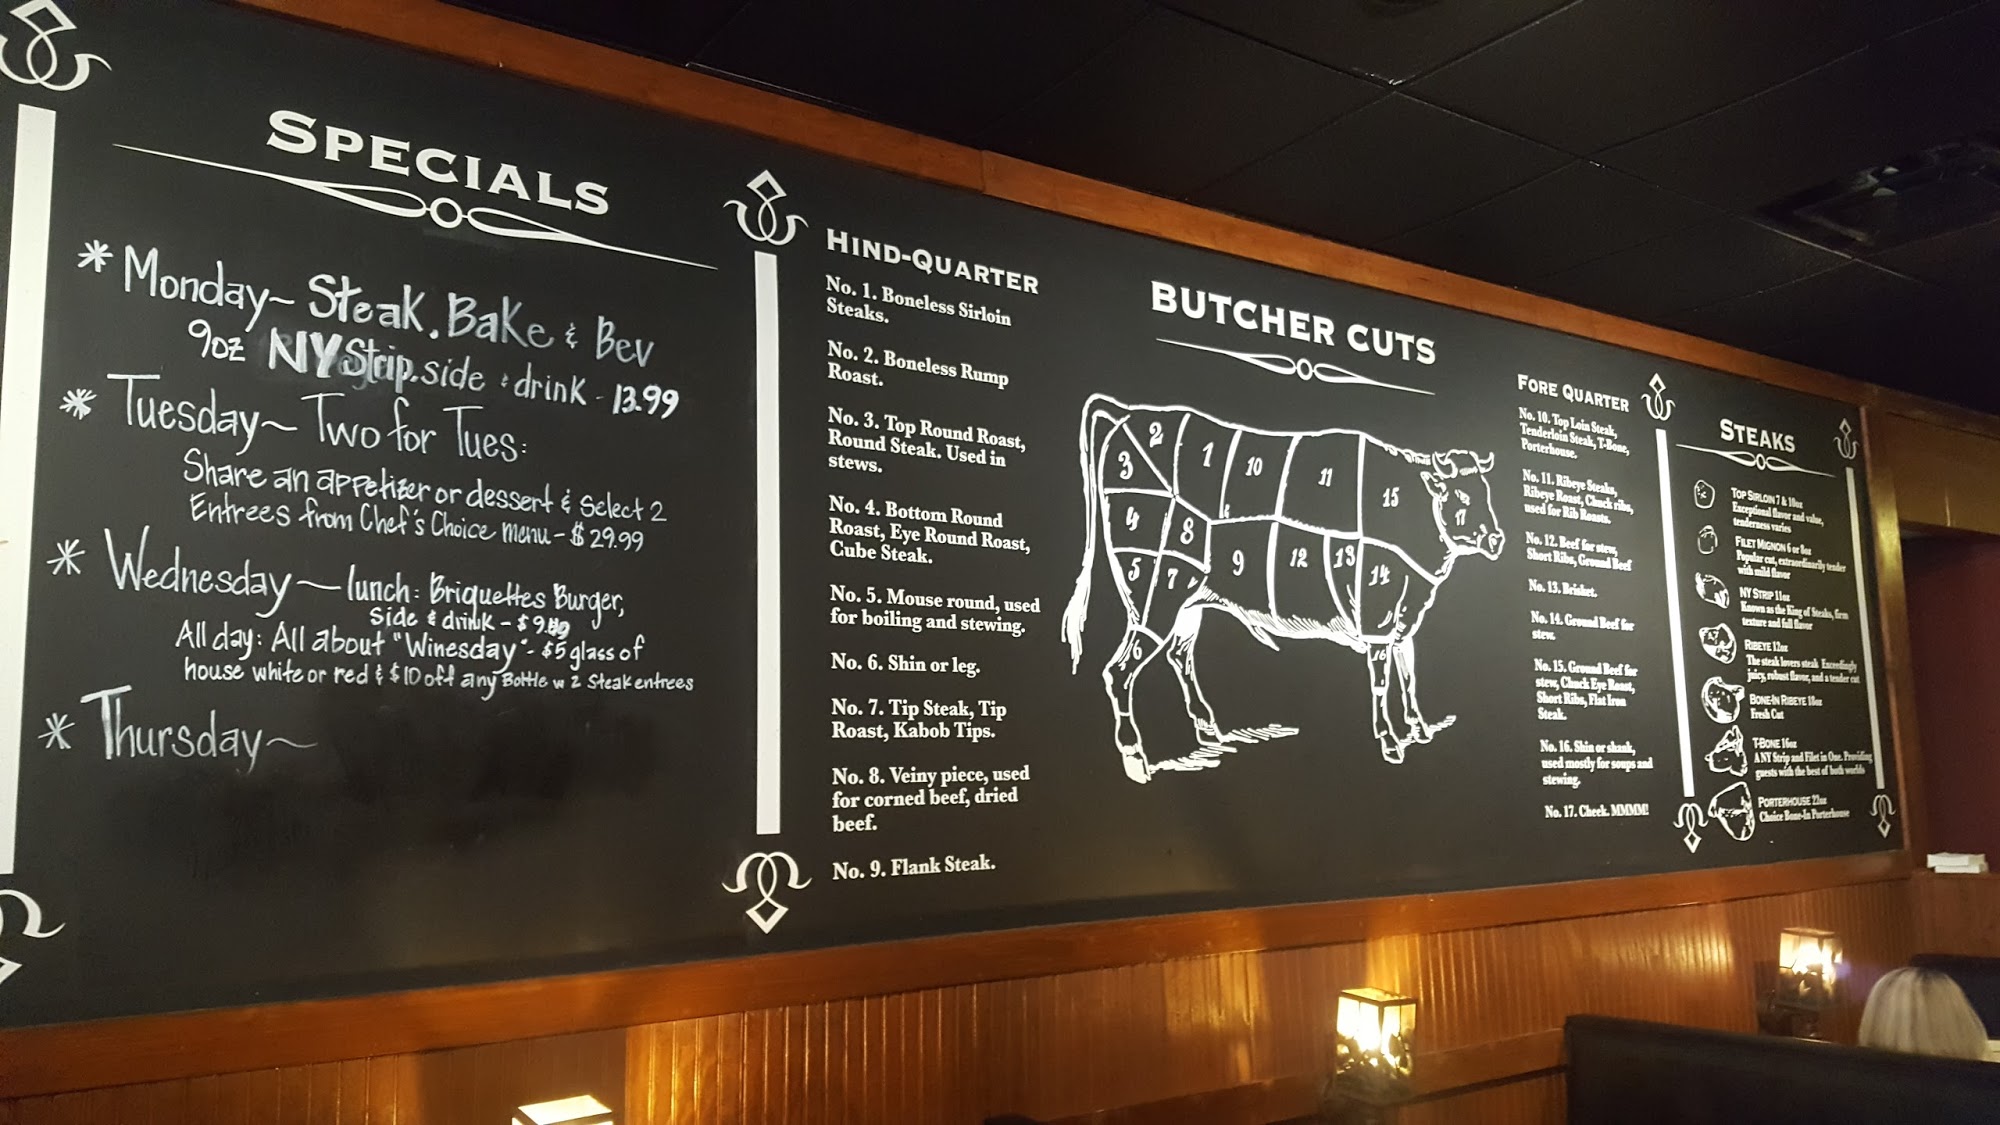 SPECIALS
* Monday~ Steak, Bake & Bev
9oz NY Strip, side & drink - 13.99
* Tuesday~ Two for Tues:
Share an appetizer or dessert & select 2
Entrees from Chef's Choice menu - $29.99
* Wednesday~ lunch: Briquettes Burger,
Side & drink - $9.99
All day: All about "Winesday" - $5 glass of
house white or red & $10 off any Bottle w 2 Steak entrees
* Thursday~
HIND-QUARTER
No. 1. Boneless Sirloin
Steaks.
No. 2. Boneless Rump
Roast.
No. 3. Top Round Roast,
Round Steak. Used in
stews.
No. 4. Bottom Round
Roast, Eye Round Roast,
Cube Steak.
No. 5. Mouse round, used
for boiling and stewing.
No. 6. Shin or leg.
No. 7. Tip Steak, Tip
Roast, Kabob Tips.
No. 8. Veiny piece, used
for corned beef, dried
beef.
No. 9. Flank Steak.
BUTCHER CUTS
2
3
1
10
11
15
17
4
8
9
12
13
14
5
7
6
16
FORE QUARTER
No. 10. Top Loin Steak,
Tenderloin Steak, T-Bone,
Porterhouse.
No. 11. Ribeye Steaks,
Ribeye Roast, Chuck ribs,
used for Rib Roasts.
No. 12. Beef for stew,
Short Ribs, Ground Beef
No. 13. Brisket.
No. 14. Ground Beef for
stew.
No. 15. Ground Beef for
stew, Chuck Eye Roast,
Short Ribs, Flat Iron
Steak.
No. 16. Shin or shank,
used mostly for soups and
stewing.
No. 17. Cheek. MMMM!
STEAKS
TOP SIRLOIN 7 & 10oz
Exceptional flavor and value,
tenderness varies
FILET MIGNON 6 or 8oz
Popular cut, extraordinarily tender
with mild flavor
NY STRIP 11oz
Known as the King of Steaks, firm
texture and full flavor
RIBEYE 12oz
The steak lovers steak Exceedingly
juicy, robust flavor, and a tender cut
BONE-IN RIBEYE 18oz
Fresh Cut
T-BONE 16oz
A NY Strip and Filet in One. Providing
guests with the best of both worlds
PORTERHOUSE 22oz
Choice Bone-In Porterhouse